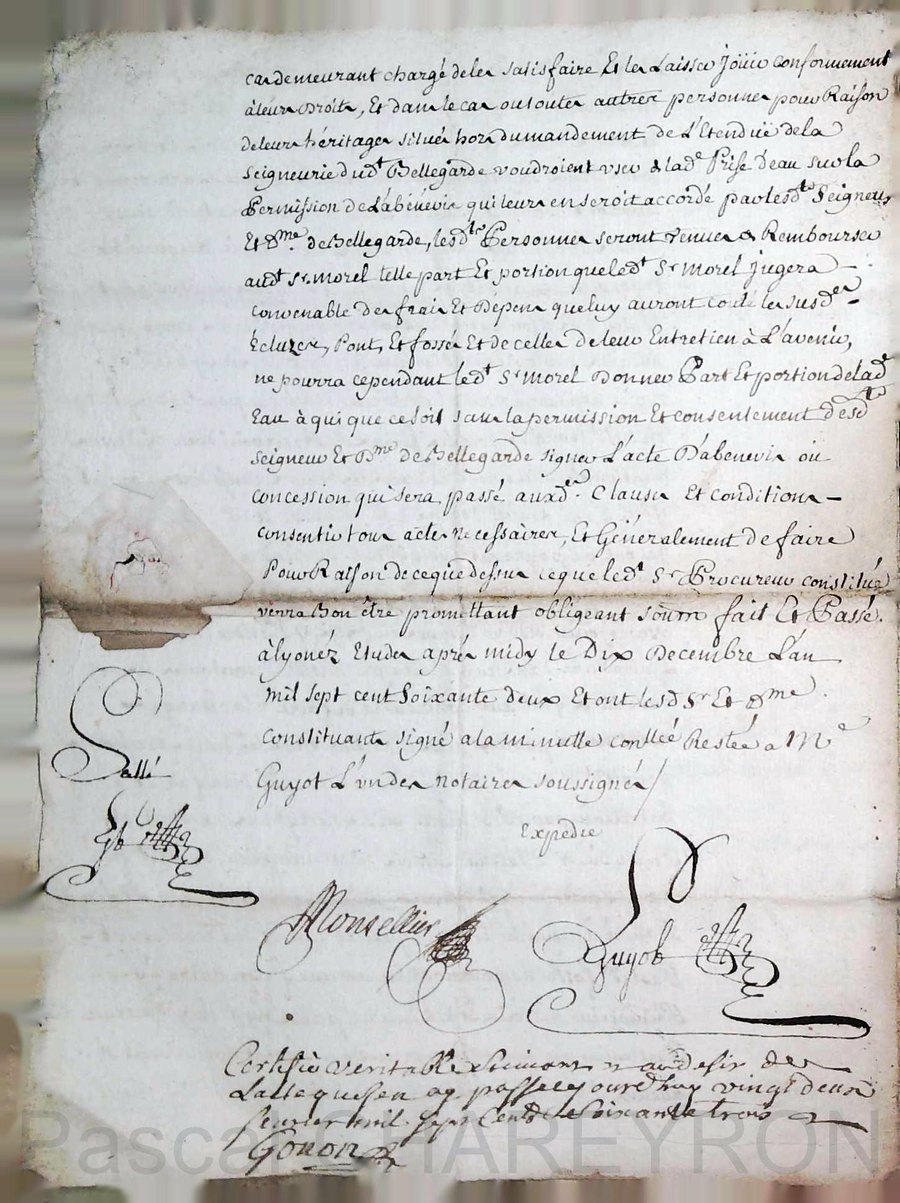 cas demeurant chargé de les satisfaire Et les Laisser Joüir conformement
à leurs Droits, Et dans le cas ou toutes autres personnes pour Raison
de leurs héritages situés hors du mandement de L'Etenduë de la
Seigneurie dud^t Bellegarde voudroient user de lad^e Prise d'eau sur la
Permission de L'abénévis qui leurs en seroit accordé par lesd^ts Seigneurs
Et D^me de Bellegarde, lesd^tes Personnes seront tenues de Rembourser
aud^t S^r. morel telle part Et portion que led^t S^r morel Jugera
convenable des frais Et Dépens que luy auront couté les susd^es
Ecluzes, Pont, Et fossés Et de celles de leur Entretien à L'avenir,
ne pourra cependant led^t S^r morel Donner Part Et portion de lad^e
Eau à qui que ce soit sans la permission Et consentement desd^ts
Seigneur Et D^me de Bellegarde signer L'acte D'abenevis ou
concession qui sera passé auxd^es. Clauses Et conditions
consentir tous actes necessaires, Et Généralement de faire
Pour Raison de ce que dessus ce que led^t S^r Procureur constitué
verra Bon être promettant obligeant soum fait Et Passé.
à lyon éz Etudes après midy le Dix Decembre L'an
mil sept cent Soixante deux Et ont lesd S^r Et D^me
Constituants signé a la minutte conllée Restée a M^e
Guyot L'un des notaires soussignés /
Expedie
Sellé
Guyot
Monsellier
Guyot
Certifié veritable au desir de
Lacte passe ce jourdhuy vingt deux
fevrier mil sept Cents Soixante trois
Gonon
Pascal CHAREYRON